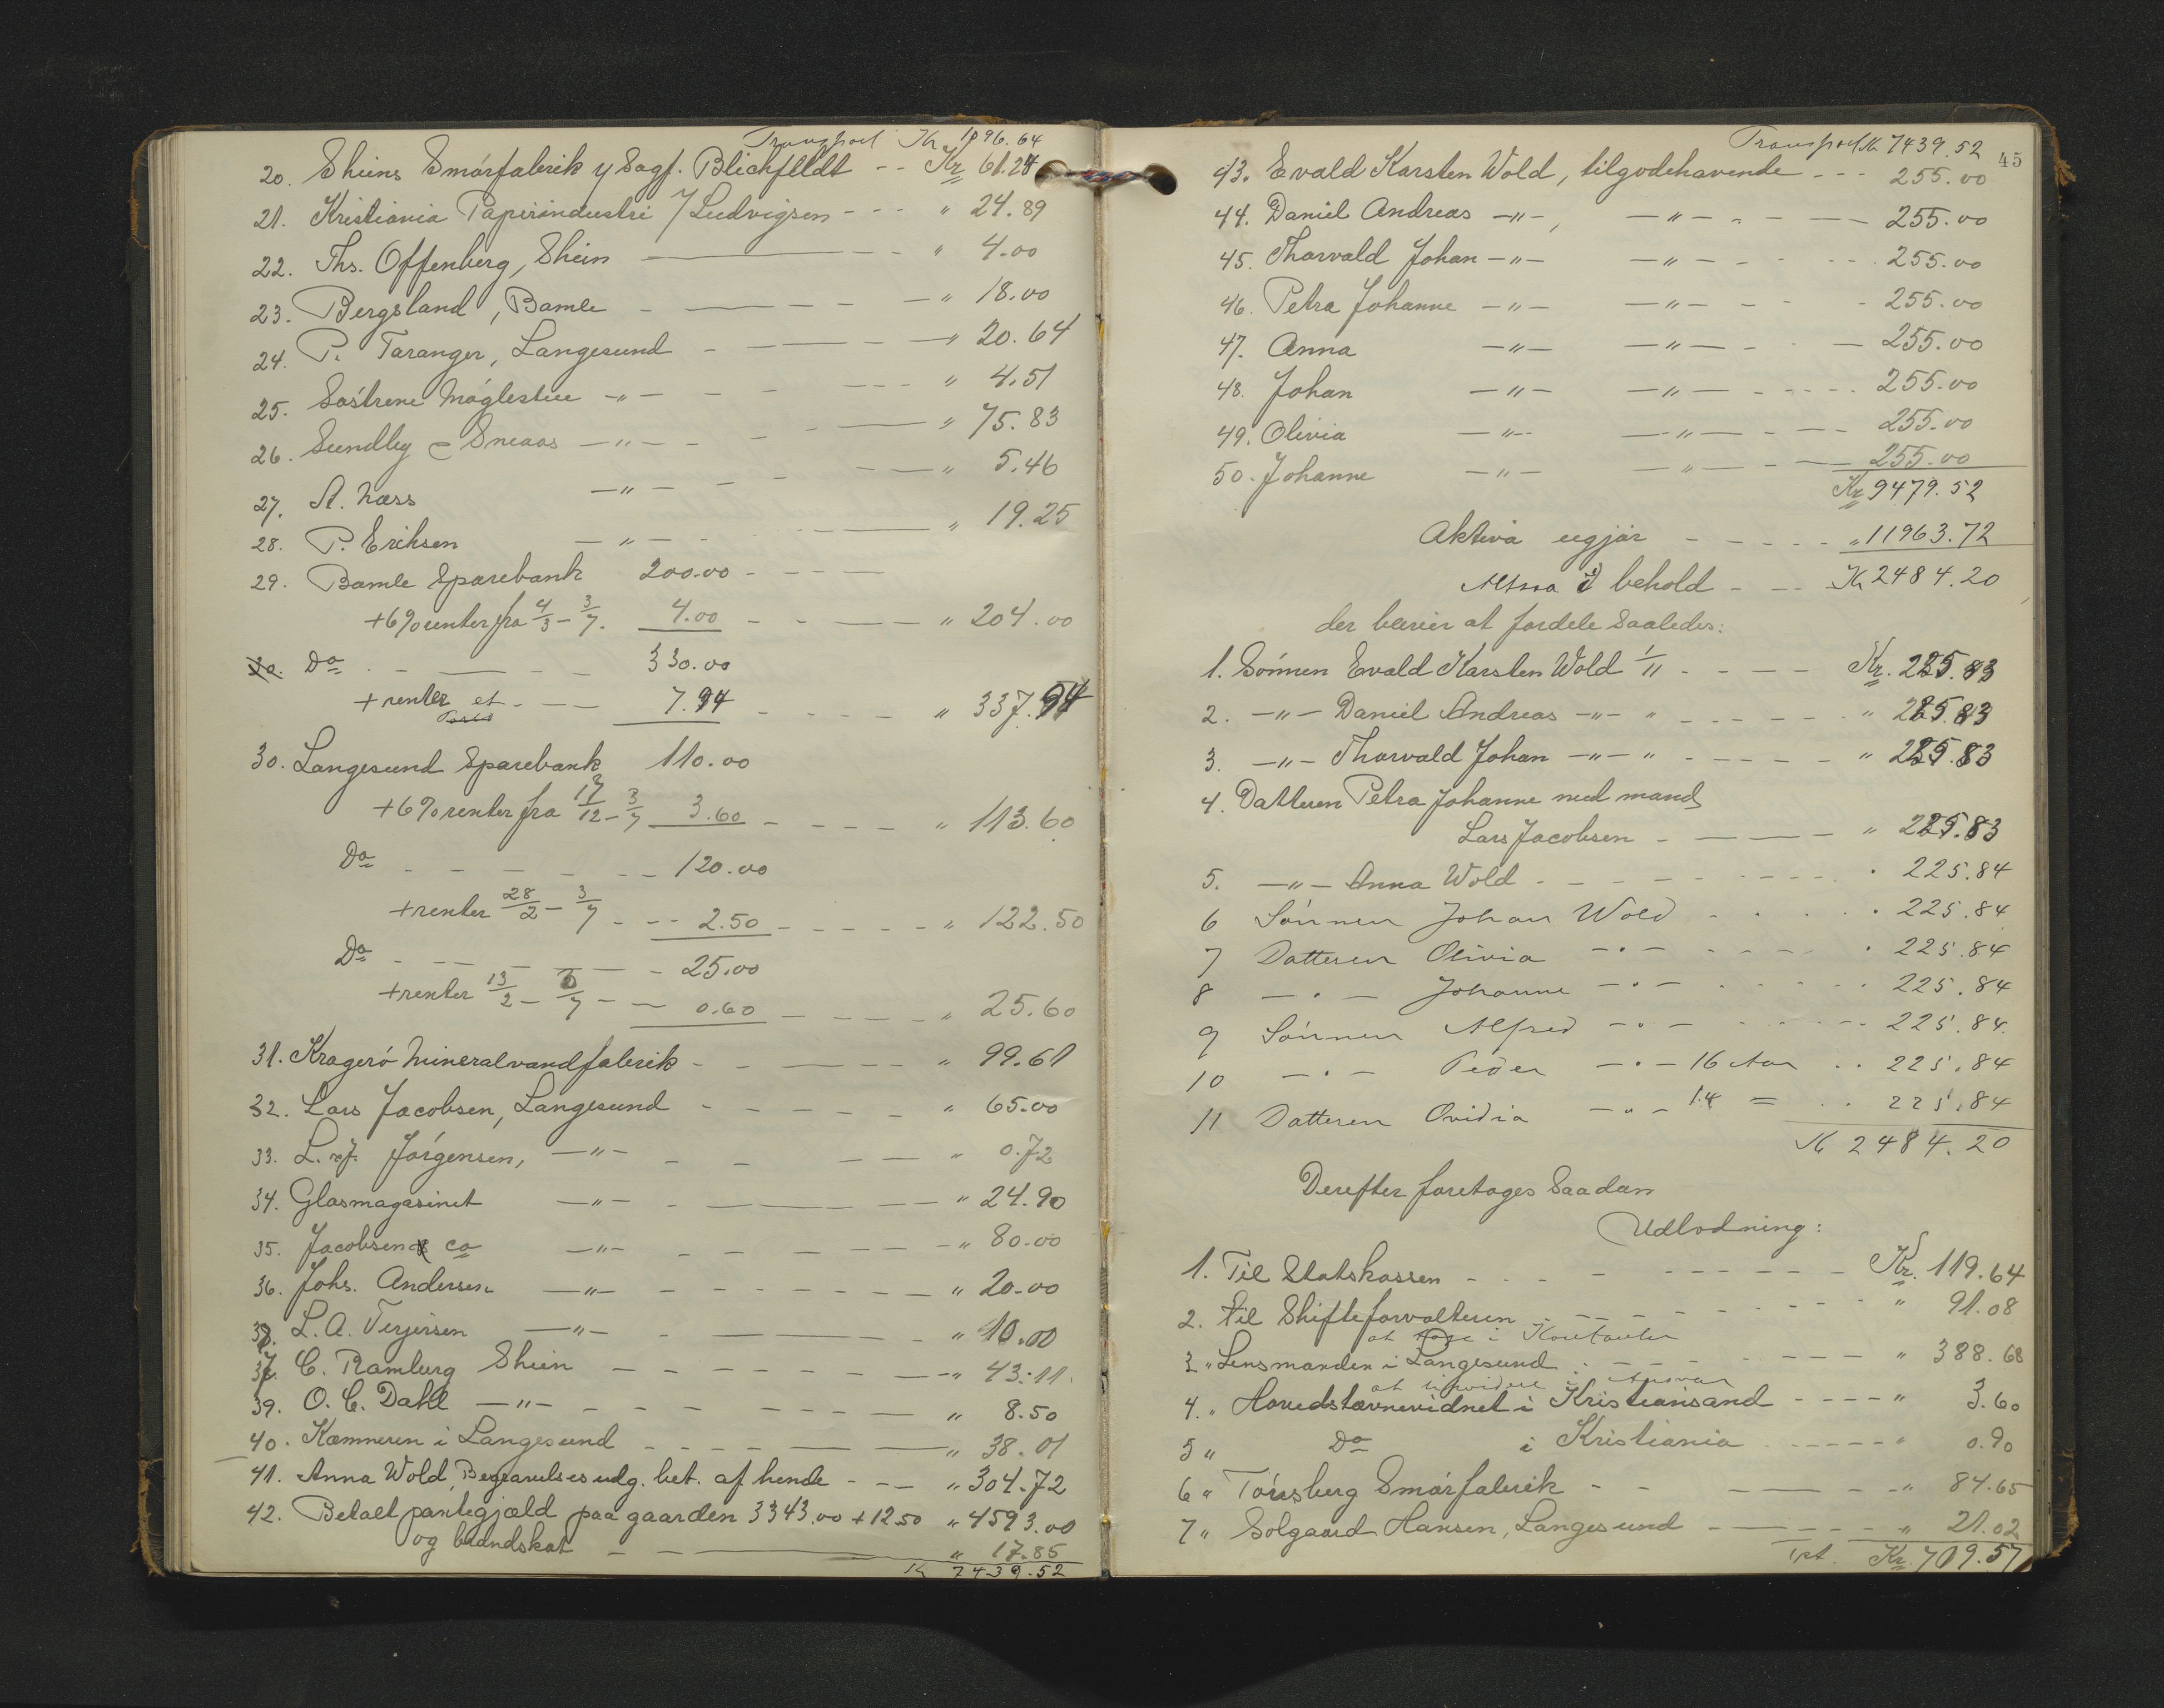 Transport Kr 1096.64
20. Skiens Smörfabrik v/ Sagf. Blichfeldt -- Kr 61.24
21. Kristiania Papirindustri v/ Ludvigsen --- " 24.89
22. Ths. Offenberg, Skien " 4.00
23. Bergsland, Bamle " 18.00
24. P. Taranger, Langesund " 20.64
25. Söstrene Möglestue -"- " 4.51
26. Sundby & Sneaas -"- " 75.83
27. A. Næss -"- " 5.46
28. P. Eriksen -"- " 19.25
29. Bamle Sparebank 200.00
+6% renter fra 4/3 - 3/7. 4.00 " 204.00
30. Do 330.00
+ renter et 7.94 " 337.94
30. Langesund Sparebank 110.00
+6% renter fra 17/12 - 3/7 3.60 " 113.60
Do 120.00
+renter 28/2 - 3/7 2.50 " 122.50
Do 25.00
+renter 13/2 - 3/7 0.60 " 25.60
31. Kragerö Mineralvandfabrik " 99.61
32. Lars Jacobsen, Langesund " 65.00
33. L. Jörgensen, -"- " 0.72
34. Glasmagasinet -"- " 24.90
35. Jacobsen & Co -"- " 80.00
36. Johs. Andersen -"- " 20.00
38. L. A. Terjersen -"- " 10.00
37. C. Ramberg Skien " 43.11
39. O. C. Dahl -"- " 8.50
40. Kæmneren i Langesund " 38.01
41. Anna Wold, Begravelsesudg. bet. af hende " 304.72
42. Betalt pantegjæld paa gaarden 3343.00 + 1250 " 4593.00
og brandskat " 17.85
Kr 7439.52
45
Transport Kr 7439.52
43. Evald Karsten Wold, tilgodehavende --- 255.00
44. Daniel Andreas -"-, -"- 255.00
45. Thorvald Johan -"- -"- 255.00
46. Petra Johanne -"- -"- 255.00
47. Anna -"- -"- 255.00
48. Johan -"- -"- 255.00
49. Olivia -"- -"- 255.00
50. Johanne -"- -"- 255.00
Kr 9479.52
Aktiva ugjör " 11963.72
Altsaa i behold Kr 2484.20
der bliver at fordele saaledes:
1. Sönnen Evald Karsten Wold 1/11 Kr. 225.83
2. -"- Daniel Andreas -"- " " 225.83
3. -"- Thorvald Johan -"- " " 225.83
4. Datteren Petra Johanne med mand
Lars Jacobsen " 225.83
5. -"- Anna Wold 225.84
6 Sönnen Johan Wold 225.84
7 Datteren Olivia -"- 225.84
8 -"- Johanne -"- 225.84
9 Sönnen Alfred -"- 225.84
10 -"- Peder -"- 16 Aar 225.84
11 Datteren Ovidia -"- 14 = 225.84
Kr 2484.20
Derefter foretoges saadan
Udlodning:
1. Til Statskassen Kr. 119.64
2. til Skifteforvalteren " 91.08
at tage i Kontanter
3 " Lensmanden i Langesund " 388.68
at likvidere i
4. " Hovedstævnevidnet i Kristiansand " 3.60
5 " Do i Kristiania " 0.90
6 " Tönsberg Smörfabrik " 84.65
7 " Solgaard Hansen, Langesund " 21.02
trpt. Kr. 709.57